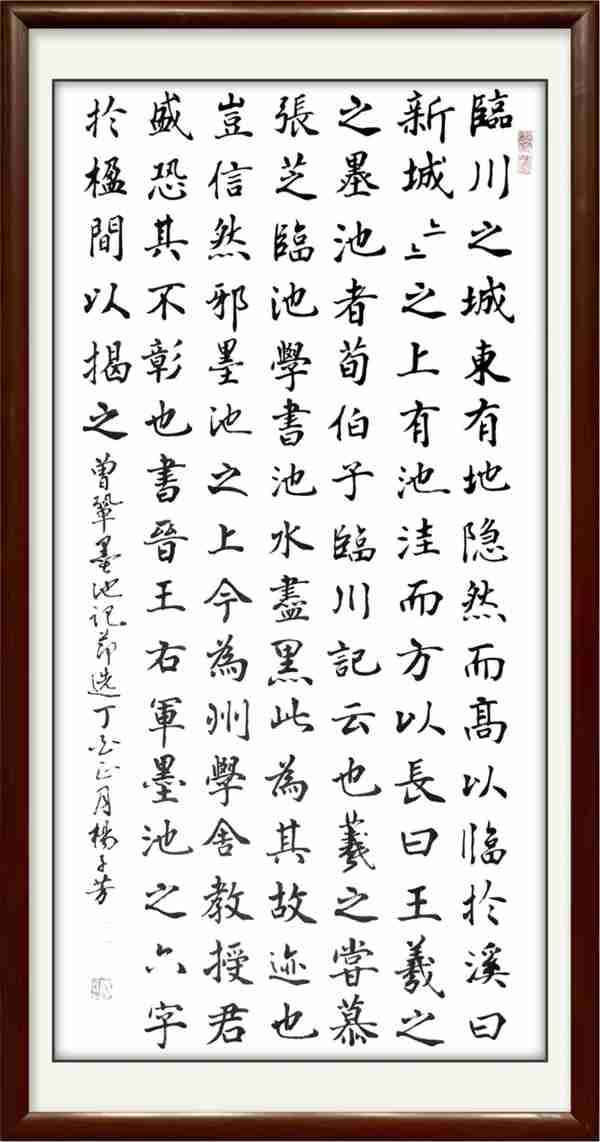 臨川之城東有地隐然而髙以临於溪曰
新城〻之上有池洼而方以長曰王羲之
之墨池者荀伯子臨川記云也羲之甞慕
張芝臨池學書池水盡黑此為其故迹也
豈信然邪墨池之上今為州學舍教授君
盛恐其不彰也書晉王右軍墨池之六字
於楹間以揭之 曾鞏墨池記節选丁酉正月楊子芳